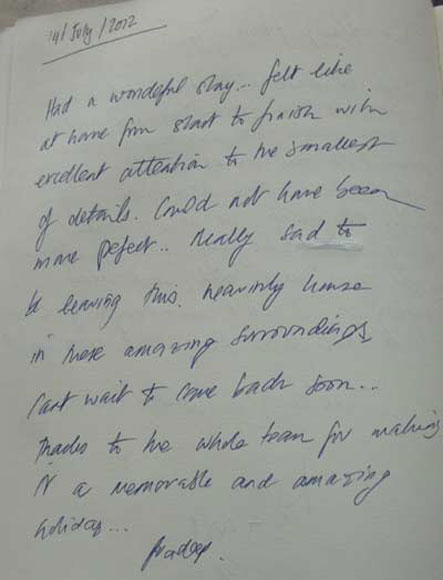 14/July/2012
Had a wonderful stay... felt like
at home from start to finish with
excellent attention to the smallest
of details. Could not have been
more perfect.. Really sad to
be leaving this heavenly house
in these amazing surroundings
Can't wait to come back soon...
Thanks to the whole team for making
it a memorable and amazing
holiday...
Pradeep.